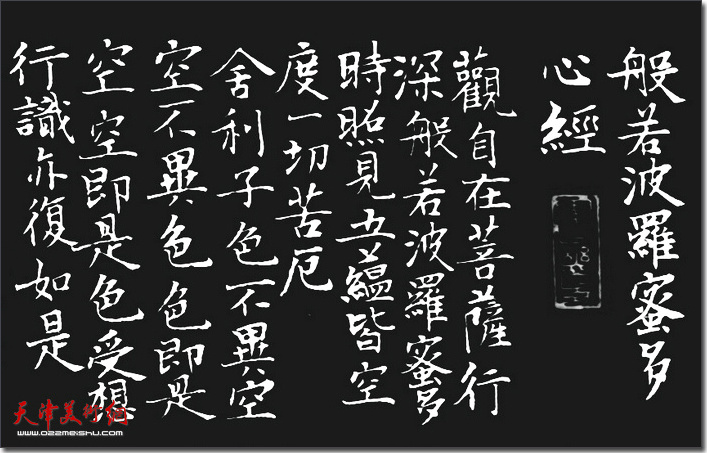 般若波羅蜜多
心經
觀自在菩薩行
深般若波羅蜜多
時照見五蘊皆空
度一切苦厄
舍利子色不異空
空不異色色即是
空空即是色受想
行識亦復如是
天津美術網
www.022meishu.com